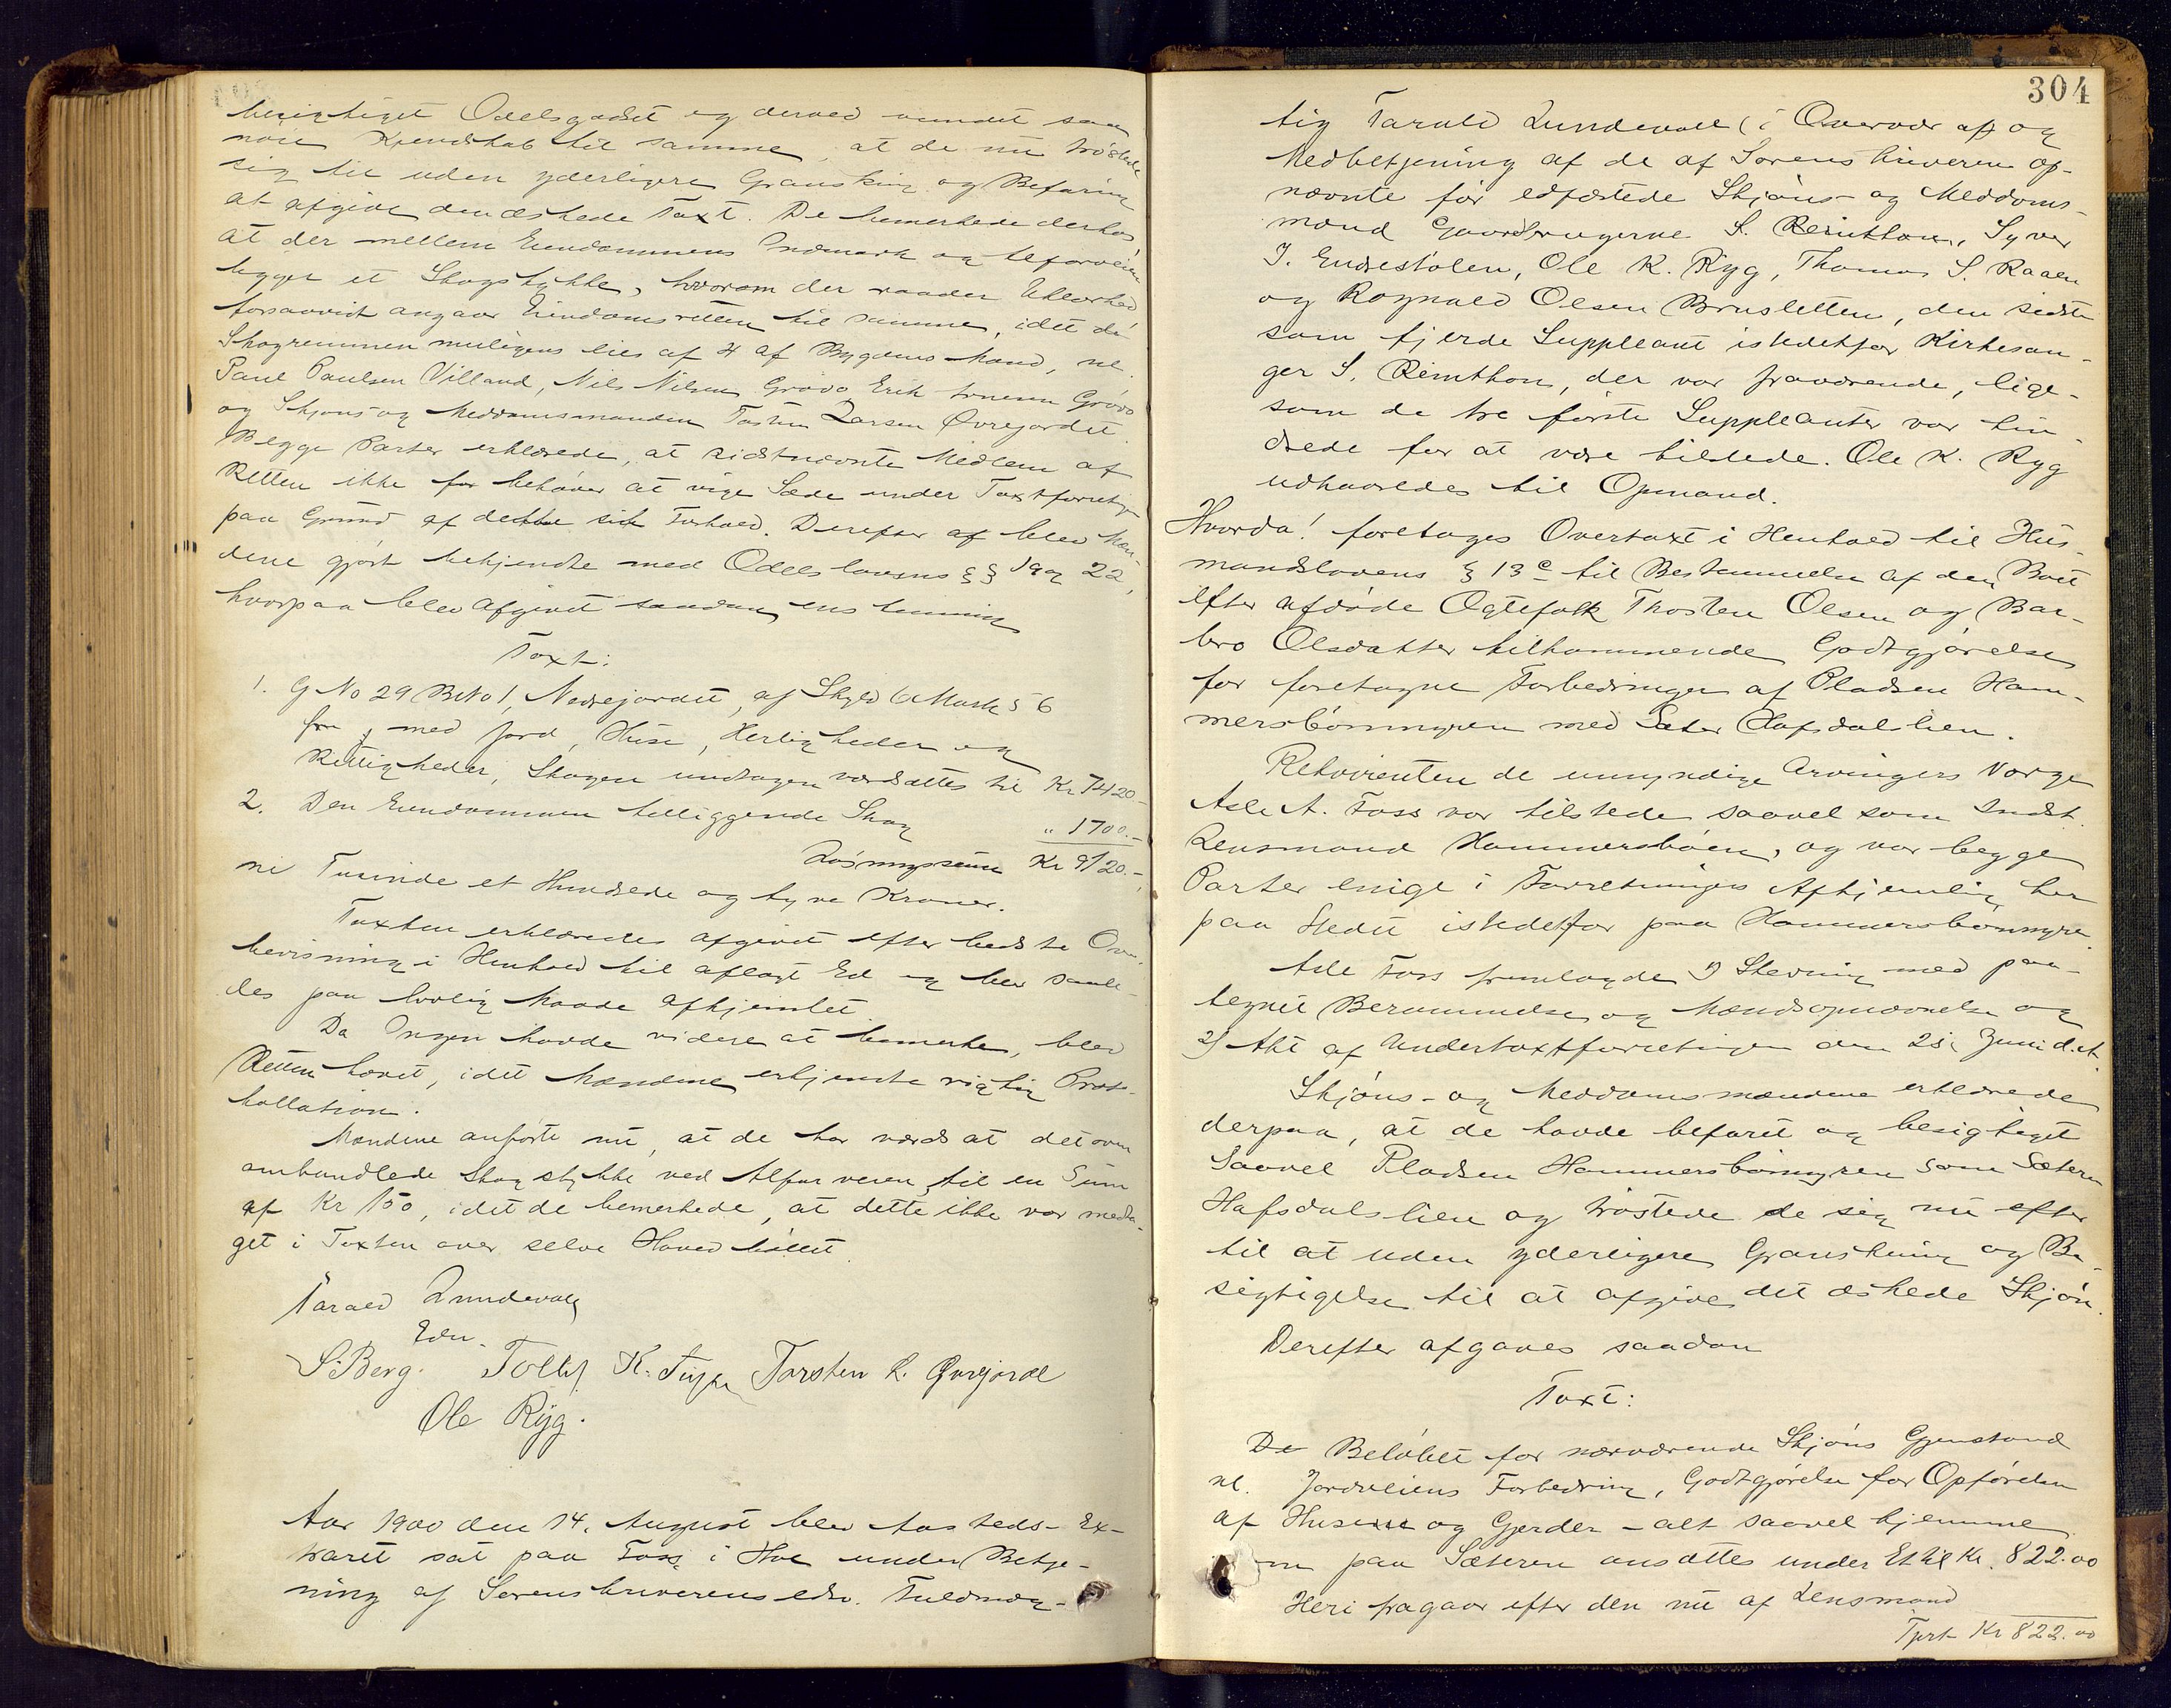 besigtiget Odelsgodset og derved vundet saa
nøie Kjendskab til samme, at de nu trøstede
sig til uden yderligere Granskning og Befaring
at afgive den æskede Taxt. De bemerkede derhos
at der mellem Eiendommens Indmark og Alfarveien
ligger et Skogstykke, hvorom der raader Uklarhed,
forsaavidt angaar Eiendomsretten til samme, idet de
Skogremmen muligens eies af 4 af Bygdens Mænd, nl.
Paul Paulsen Villand, Nils Nilsen Grøvo Erik Grøvo
og Skjøns og Meddomsmanden Tosten Larsen Øvrejordet.
Begge Parter erklærede, at sidstnævnte Medlem af
Retten ikke for behøver at vige Sæde under Taxtforretn.
paa Grund af dette sit Forhold. Derefter af blev Mæn-
dene gjort bekjendte med Odelslovens §§ 19 og 22,
hvorpaa blev afgivet saadan enstemmig
Taxt:
1. G No 29 B No 1, Nedrejordet, af Skyld 6 Mark 56
Øre, med Jord, Huse, Herligheder og
Rettigheder, Skogen undtagen værdsattes til Kr 7420.-
2. Den Eiendommen tilliggende Skog " 1700.-
Løsningssum Kr 9120.-,
ni Tusinde et Hundrede og tyve Kroner.
Taxten erklæredes afgivet efter bedste Over-
bevisning i Henhold til aflagt Ed og blev saale-
des paa lovlig Maade afhjemlet.
Da Ingen havde videre at bemerke, blev
Retten hævet, idet Mændene erkjendte rigtig Proto-
kollation.
Mændene anførte nu, at de har værdsat det oven
omhandlede Skogstykke ved Alfarveien til en Sum
af Kr 150, idet de bemerkede, at dette ikke var medta-
get i Taxten over selve Hovedbølet.
Tarald Lundevall
Edv.
S. Berg. Tollef K. Torsten L. Øvrejorde
Ole Ryg.
Aar 1900 den 14. August blev Aasteds-Ex-
traret sat paa Foss i Hol under Betje-
ning af Sorenskriverens edsv. Fuldmæg-
304
tig Tarald Lundevall (i Overvær af og
Medbetjening af de af Sorenskriveren op-
nævnte før edfæstede Skjøns- og Meddoms-
mænd Gaardbrugerne S. Reinthon, Syver
J. Endrestølen, Ole K. Ryg, Thomas S. Raaen
og Ragnald Olsen Brusletten, den sidste
som fjerde Suppleant istedetfor Kirkesan-
ger S. Reinthon, der var fraværende, lige-
som de tre første Suppleanter var hin-
drede for at være tilstede. Ole K. Ryg
udkaaredes til Opmand.
Hvorda! foretages Overtaxt i Henhold til Hus-
mandslovens § 13 c til Bestemmelse af den Boet
efter afdøde Ægtefolk Thosten Olsen og Bar-
bro Olsdatter tilkommende Godtgjørelse
for foretagne Forbedringer af Pladsen Ham-
mersbømyren med Sæter Hafsdalslien.
Rekvirenten de umyndige Arvingers Værge
Asle A. Foss var tilstede saavel som Indst.
Lensmand Hammersbøen, og var begge
Parter enige i Forretningens Afhjemling her
paa Stedet istedetfor paa Hammersbømyren.
Asle Foss fremlagde 1) Stevning med paa-
tegnet Berammelse og Mandsopnævnelse og
2) Akt af Undertaxtforretningen den 25. Juni d.A.
Skjøns- og Meddomsmændene erklærede
derpaa, at de havde befaret og besigtiget
saavel Pladsen Hammersbømyren som Sæteren
Hafsdalslien og trøstede de sig nu efter
til at uden yderligere Granskning og Be-
sigtigelse til at afgive det æskede Skjøn.
Derefter afgaves saadan
Taxt:
De Beløbet for nærværende Skjøns Gjenstand
nl. Jordveiens Forbedring, Godtgjørelse for Opførelse
af Husene og Gjerder - alt saavel hjemme
som paa Sæteren ansattes under Et til Kr. 822.00
Heri fragaar efter den nu af Lensmand
Tprt Kr 822.00